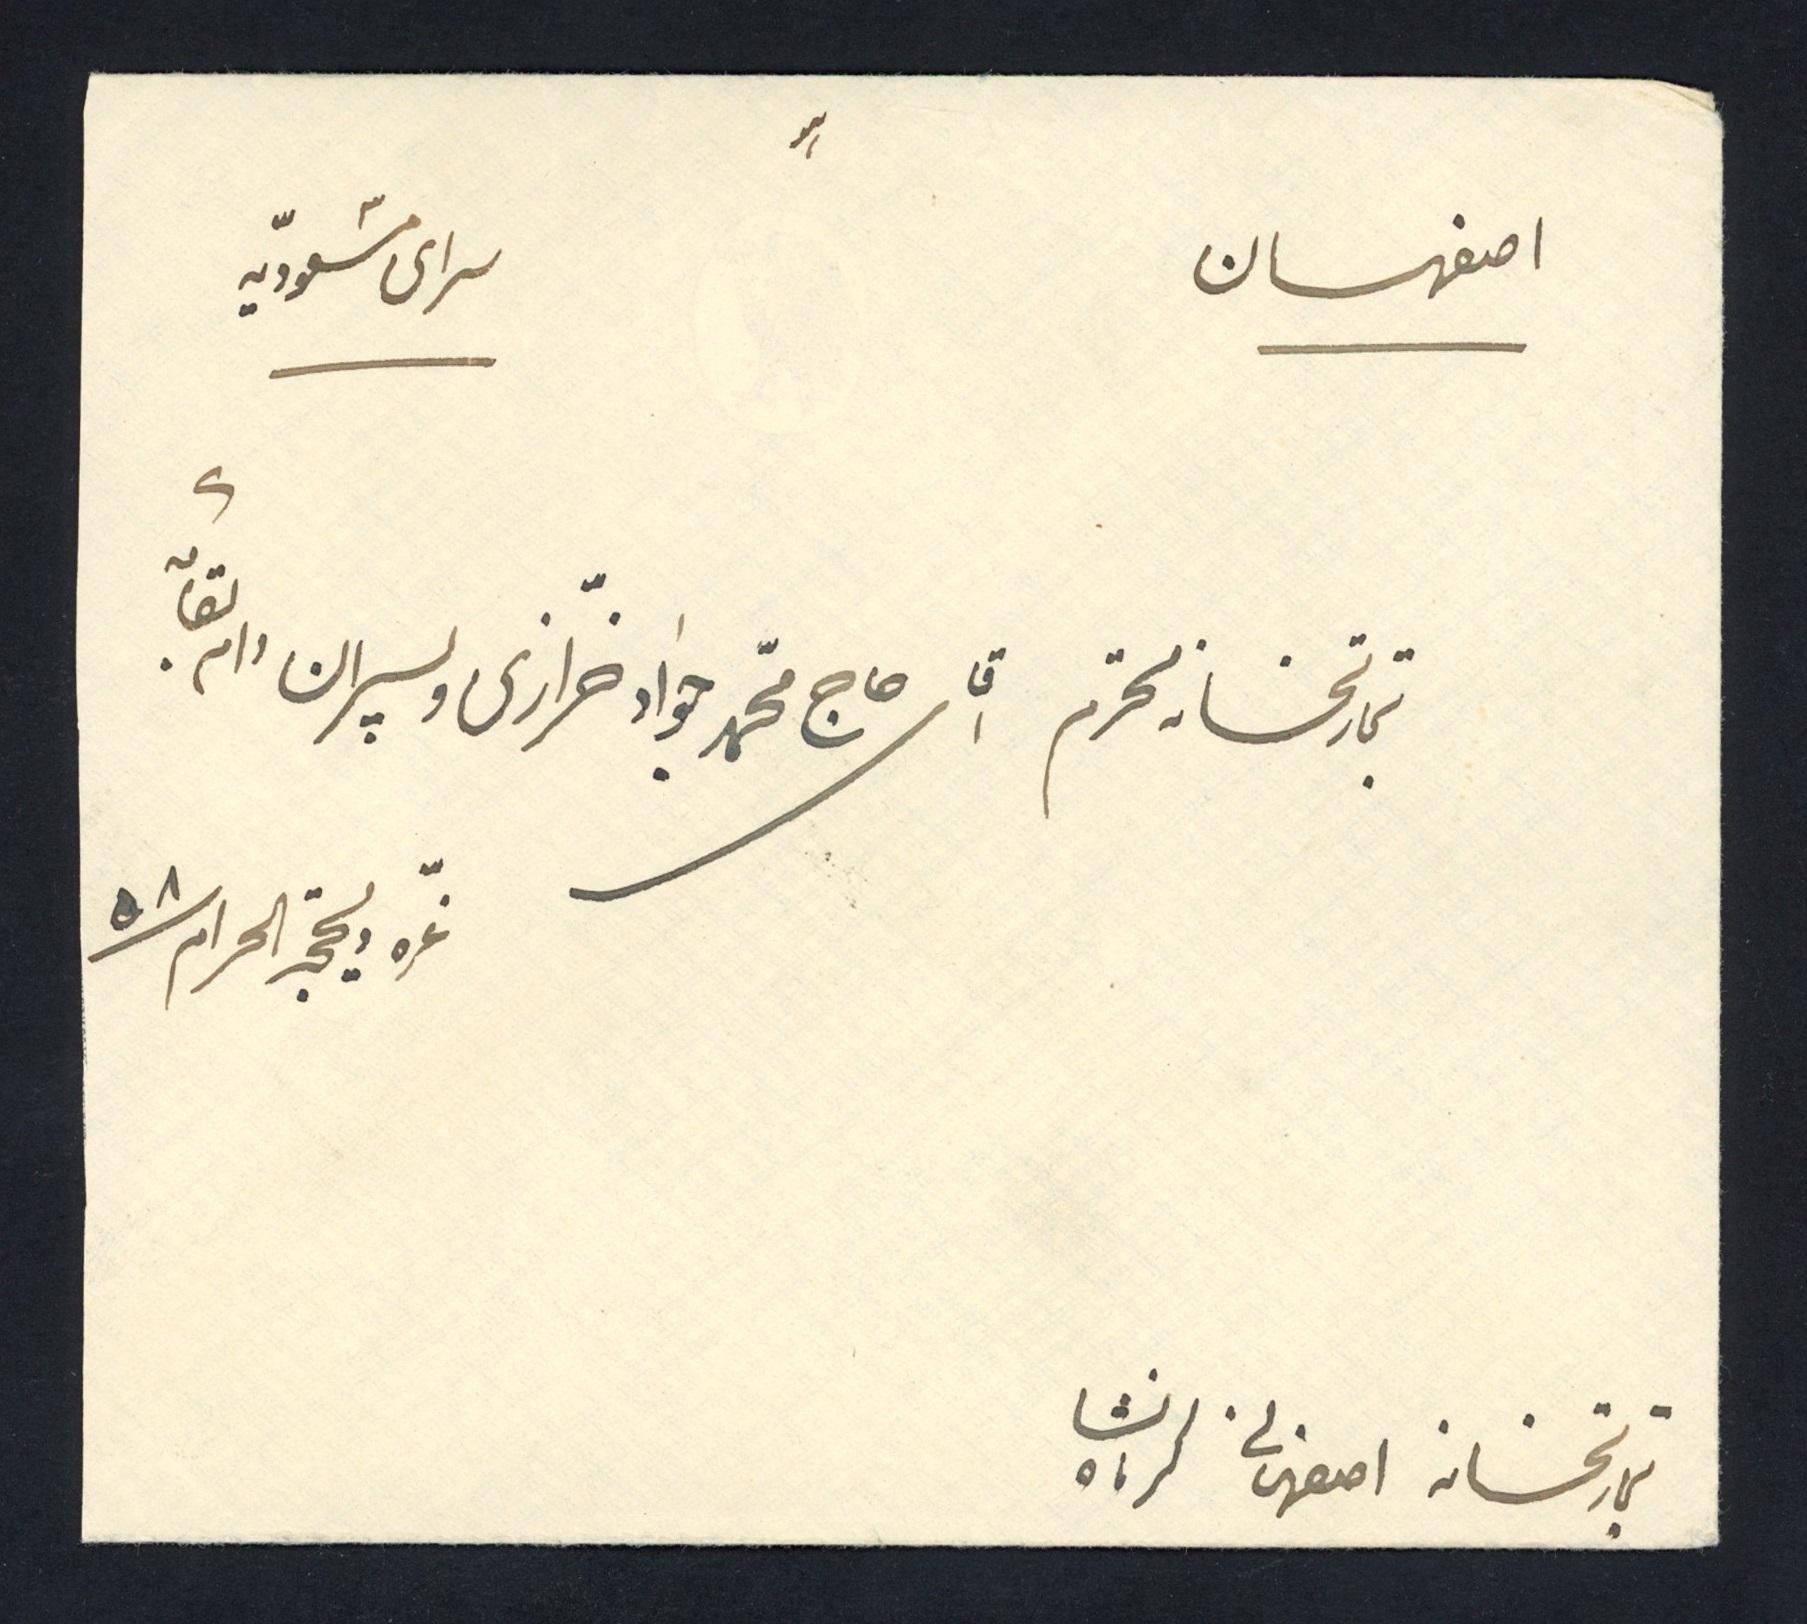 اصفهان
سرای مسعودیّه
تجارتخانه محترم آقای حاج محمّد جواد خرّازی و پسران دام بقاه
غرّه ذیحجه الحرام ۵۸
تجارتخانه اصفهانی کرمانشاه